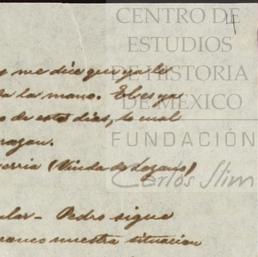 CENTRO DE
ESTUDIOS
DE HISTORIA
DE MÉXICO
FUNDACIÓN
Carlos Slim
y me dice que ya le
la mano. El es ya
de estos dias, lo cual
(Viuda de Lozano)
Pedro sigue
nuestra situacion